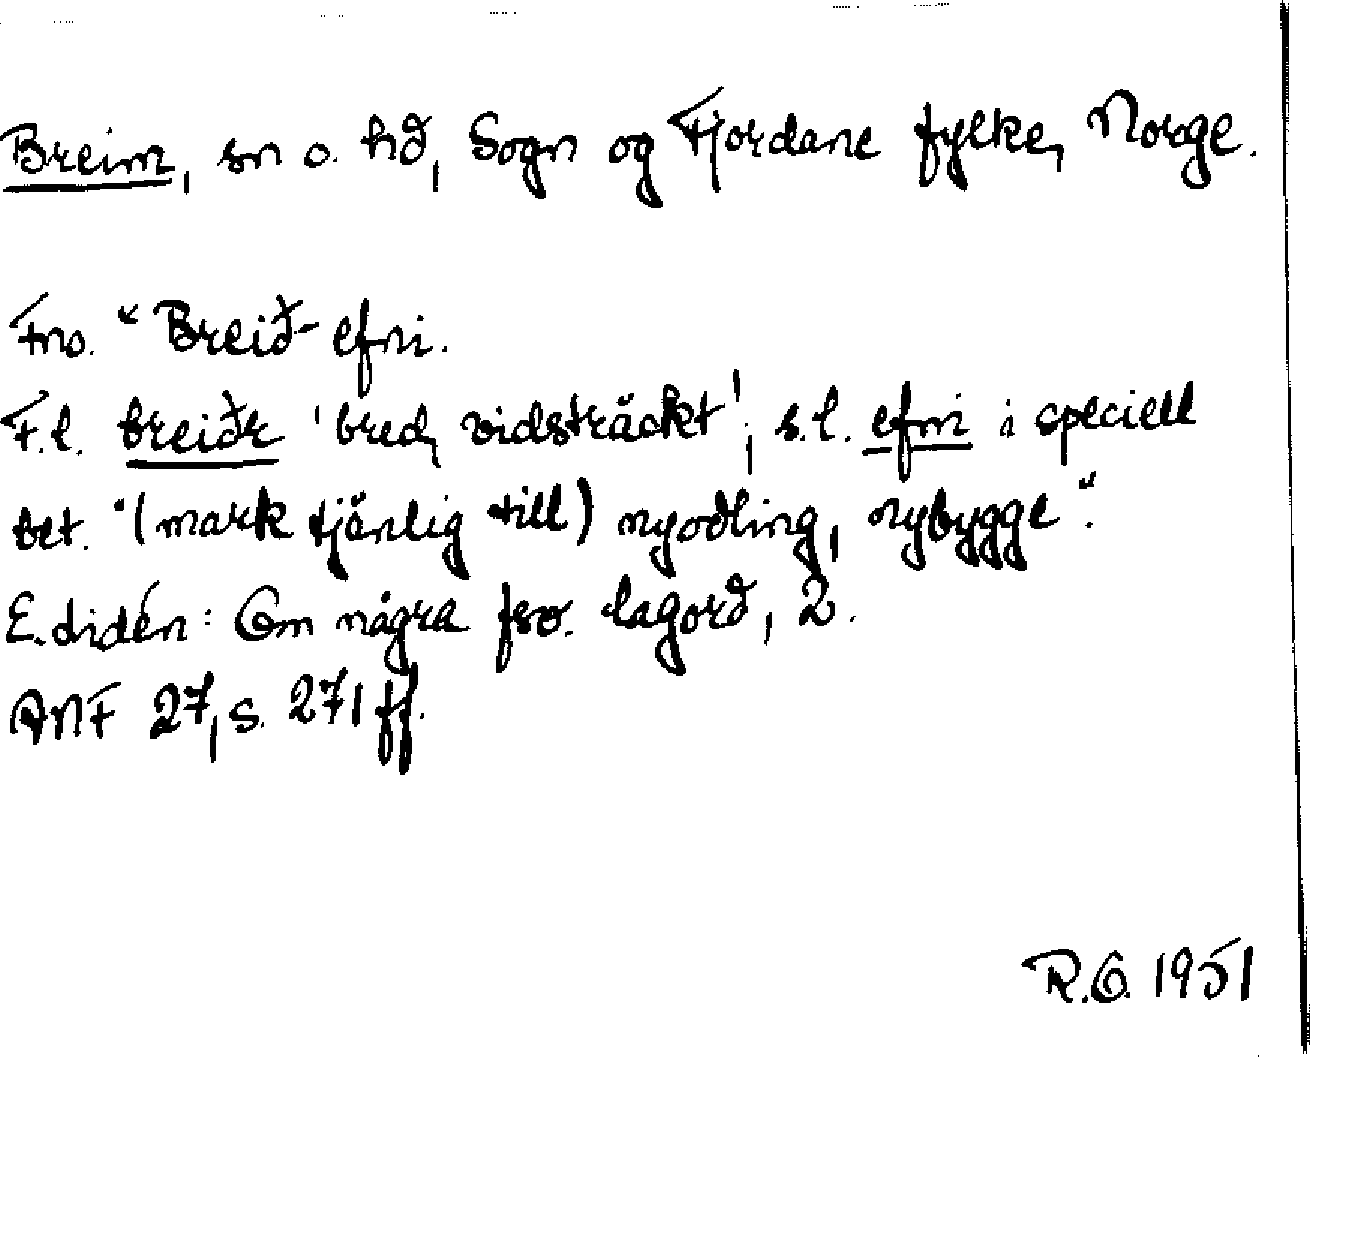 Breim, sn o. hd, Sogn og Fjordane fylke, Norge.
Fno. *Breið-efni.
F.l. breiðr 'bred, vidsträckt', s.l. efni i speciell
bet. "(mark tjänlig till) nyodling, nybygge".
E. Lidén: Om några fsv. lagord, 2.
ANF 27, s. 271 ff.
R.O. 1951